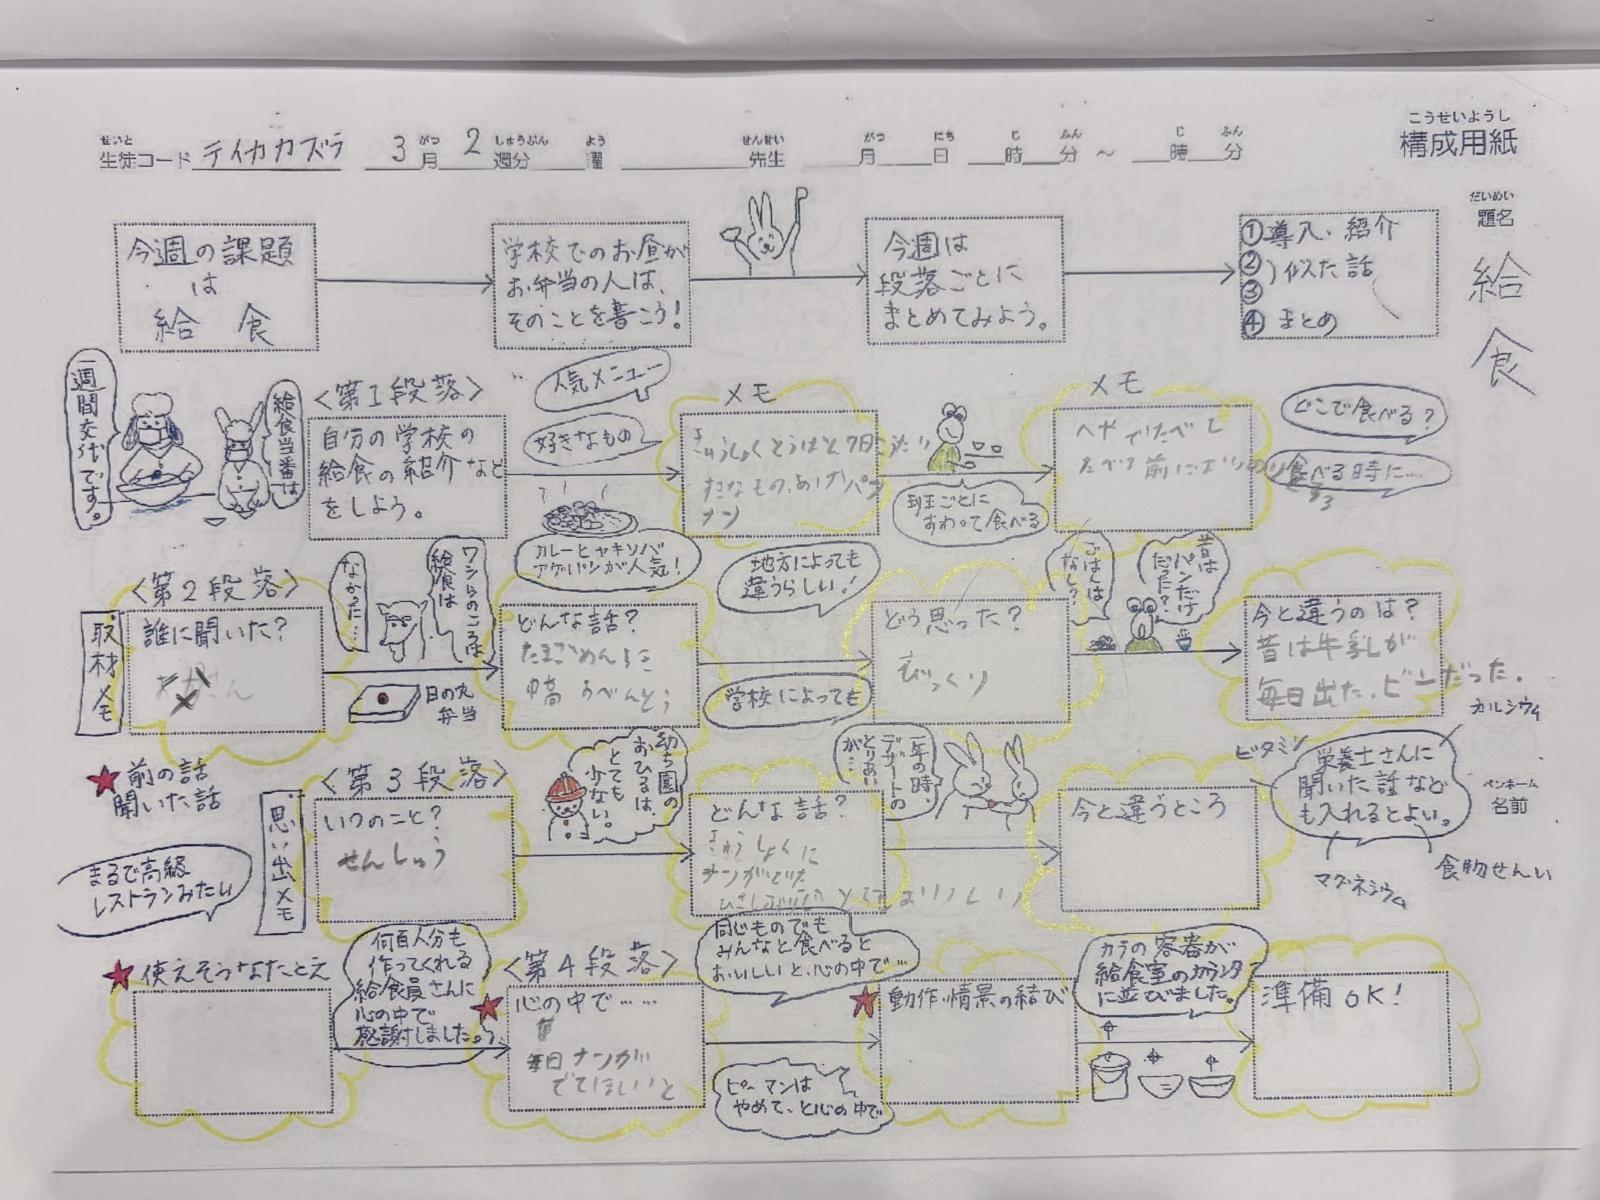 せいと
生徒コード テイカカズラ
3 がつ 月 2 しゅうぶん 週分 よう 曜
せんせい 先生
がつ 月 にち 日 じ 時 ふん 分 ~ じ 時 ふん 分
こうせいようし
構成用紙
だいめい
題名
給食
今週の課題
は
給 食
学校でのお昼が
お弁当の人は、
そのことを書こう!
今週は
段落ごとに
まとめてみよう。
①導入、紹介
②
③ 似た話
④ まとめ
一週間交代です。
給食当番は
<第1段落>
自分の学校の
給食の紹介など
をしよう。
人気メニュー
好きなもの
カレーとヤキソバ
アゲパンが人気!
メモ
きゅうしょくとうばん7日
すきなもの、あげパン
ナン
班ごとに
すわって食べる
メモ
へやでたべて
たべる前に
どこで食べる?
食べる時に……
<第2段落>
取材メモ
誰に聞いた?
なかった…
ワシらのころは
給食は
日の丸
弁当
どんな話?
地方によっても
違うらしい!
学校によっても
どう思った?
びっくり
ごはんは
なし?
昔は
パンだけ
だった?
今と違うのは?
昔は牛乳が
毎日出た、ビンだった.
★前の話
聞いた話
まるで高級
レストランみたい
<第3段落>
思い出メモ
いつのこと?
せんしゅう
幼ち園の
おひるは、
とても
少ない。
どんな話?
きゅうしょくに
ナンがでた
ひさしぶりで とても おいしい
一年の時、
デザートの
とりあい
が…
今と違うところ
栄養士さんに
聞いた話など
も入れるとよい。
ビタミン
カルシウム
マグネシウム
食物せんい
ペンネーム
名前
★使えそうなたとえ
何百人分も
作ってくれる
給食員さんに
心の中で
感謝しました。
<第4段落>
★心の中で……
毎日ナンが
でてほしいと
同じものでも
みんなと食べると
おいしいと、心の中で…
ピーマンは
やめて、と心の中で
★動作・情景の結び
カラの容器が
給食室のカウンタ
に並びました。
準備OK!